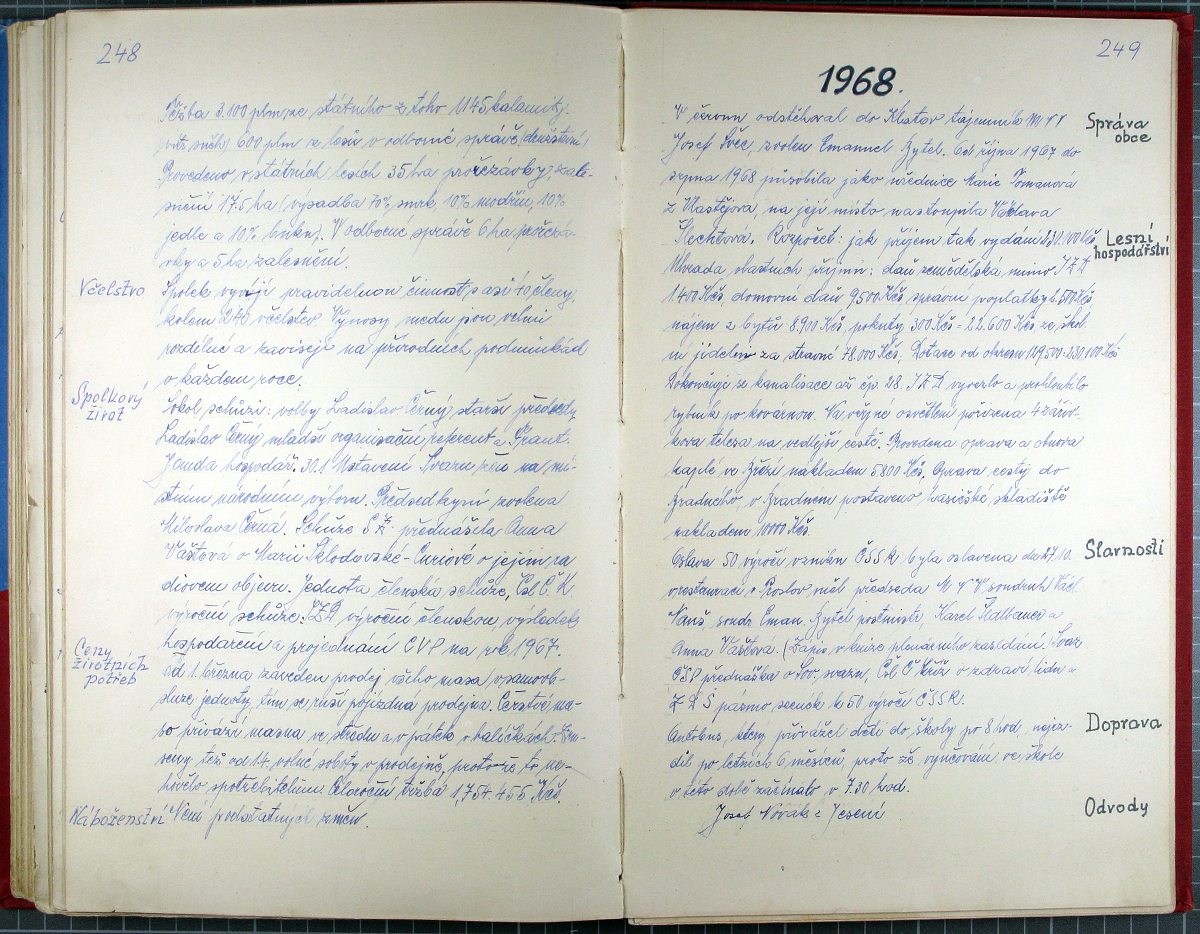 248
Těžba 3.100 plm ze státního z toho 1145 kalamity.
600 plm z lesů v odborné správě (družstevní)
Provedeno v státních lesích 35 ha prořezávky, zale-
snění 17.5 ha (výsadba 70% smrk, 10% modřín, 10%
jedle a 10% buku). V odborné správě 6 ha prořezá-
vky a 5 ha zalesnění.
Včelstvo
Spolek vyvíjí pravidelnou činnost, s asi 40 členy,
kolem 240 včelstev. Výnosy medu jsou velmi
rozdílné a závisejí na přírodních podmínkách
o každém roce.
Spolkový
život
Sokol schůzi: volby Ladislav Černý starší předseda,
Ladislav Černý mladší organisační referent a Frant.
Janda hospodář. 30.1 Ustavení Svazu žen na mí-
stním národním výboru. Předsedkyní zvolena
Miloslava Černá. Schůze S Ž. přednášela Anna
Vaštová o Marii Sklodovské-Curiové o jejím ra
diovém objevu. Jednota členská schůze, Čsl. Č. K.
výroční schůze. JZD výroční členskou, výsledek
hospodaření a projednání CVP na rok 1967.
Ceny
životních
potřeb
Od 1. března zaveden prodej všeho masa v samoob-
sluze jednoty, tím se ruší pojízdná prodejna. Čerstvé ma-
so přiváží masna ve středu a v pátek v balíčkách. Zru-
šeny též od 1.4. volné soboty v prodejně, protože to ne-
hovělo spotřebitelům. Celoroční tržba 1,754.455 Kčs.
Náboženství
Není podstatných změn.
249
1968.
Správa
obce
V červnu odstěhoval do Klatov tajemník M N V
Josef Švec, zvolen Emanuel Bytel. Od října 1967 do
srpna 1968 působila jako úřednice Marie Tomanová
z Vlastějova, na její místo nastoupila Václava
Šlechtová. Rozpočet: jak příjem tak vydání 230.100 Kčs
Lesní
hospodářství
Úhrada vlastních příjmů: daň zemědělská mimo JZD
1400 Kčs domovní daň 9500 Kčs, správní poplatky 2.500 Kčs
nájem z bytů 8.900 Kčs, pokuty 300 Kčs = 22.600 Kčs ze škol.
ní jídelny za stravné 78.000 Kčs. Dotace od okresu 129.500 = 230.100 Kčs
Dokončuje se kanalisace až čp. 28. JZD vyvezlo a prohloubilo
rybník po kovárnou. Na veřejné osvětlení pořízena 4 zářiv-
kova telesa na vedlejší cestě. Provedena oprava a obnova
kaple ve nákladem 5800 Kčs. Oprava cesty do
Hradného, v Hradném postaveno hasičské skladiště
nákladem 10000 Kčs.
Slavnosti
Oslava 50 výročí vzniku ČSSR byla oslavena dne 27.10.
v restauraci. Proslov měl předseda M N V soudruh Václ.
Vaniš, soudr. Eman. Bytel, Karel Kadlbauer a
Anna Vaštová. (Zápis v knize plenárního zasedání) Svaz
ČSP přednáška o Sov. svazu, Čsl. Č kříž o zdraví lidu a
Z D Š pásmo scének k 50 výročí ČSSR.
Doprava
Autobus, který přivážel děti do školy po 8 hod. nejez-
dil po letních 6 měsíců, proto že vyučování ve škole
v této době začínalo v 7.30 hod.
Odvody
Josef Novák z Jesení